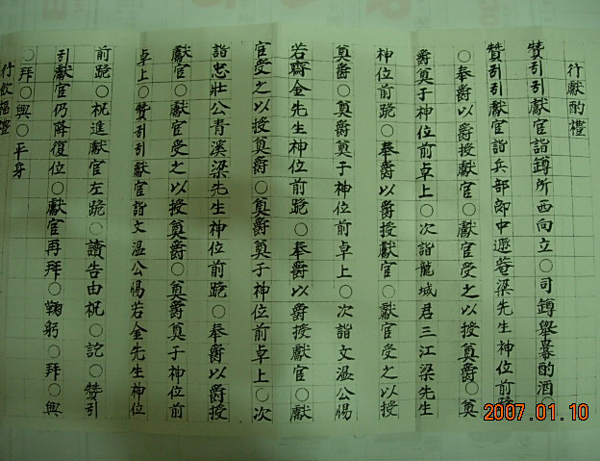 行獻酌禮
贊引引獻官詣罇所西向立○司罇擧冪酌酒
贊引引獻官詣兵部郎中遯菴梁先生神位前跪
○奉爵以爵授獻官○獻官受之以授奠爵○奠
爵奠于神位前卓上○次詣龍城君三江梁先生
神位前跪○奉爵以爵授獻官○獻官受之以授
奠爵○奠爵奠于神位前卓上○次詣文溫公惕
若齋金先生神位前跪○奉爵以爵授獻官○獻
官受之以授奠爵○奠爵奠于神位前卓上○次
詣忠壯公靑溪梁先生神位前跪○奉爵以爵授
獻官○獻官受之以授奠爵○奠爵奠于神位前
卓上○贊引引獻官詣文溫公惕若金先生神位
前跪○祝進獻官左跪○讀告由祝○訖○贊引
引獻官仍降復位○獻官再拜○鞠躬○拜○興
○拜○興○平身
行飮福禮
2007.01.10